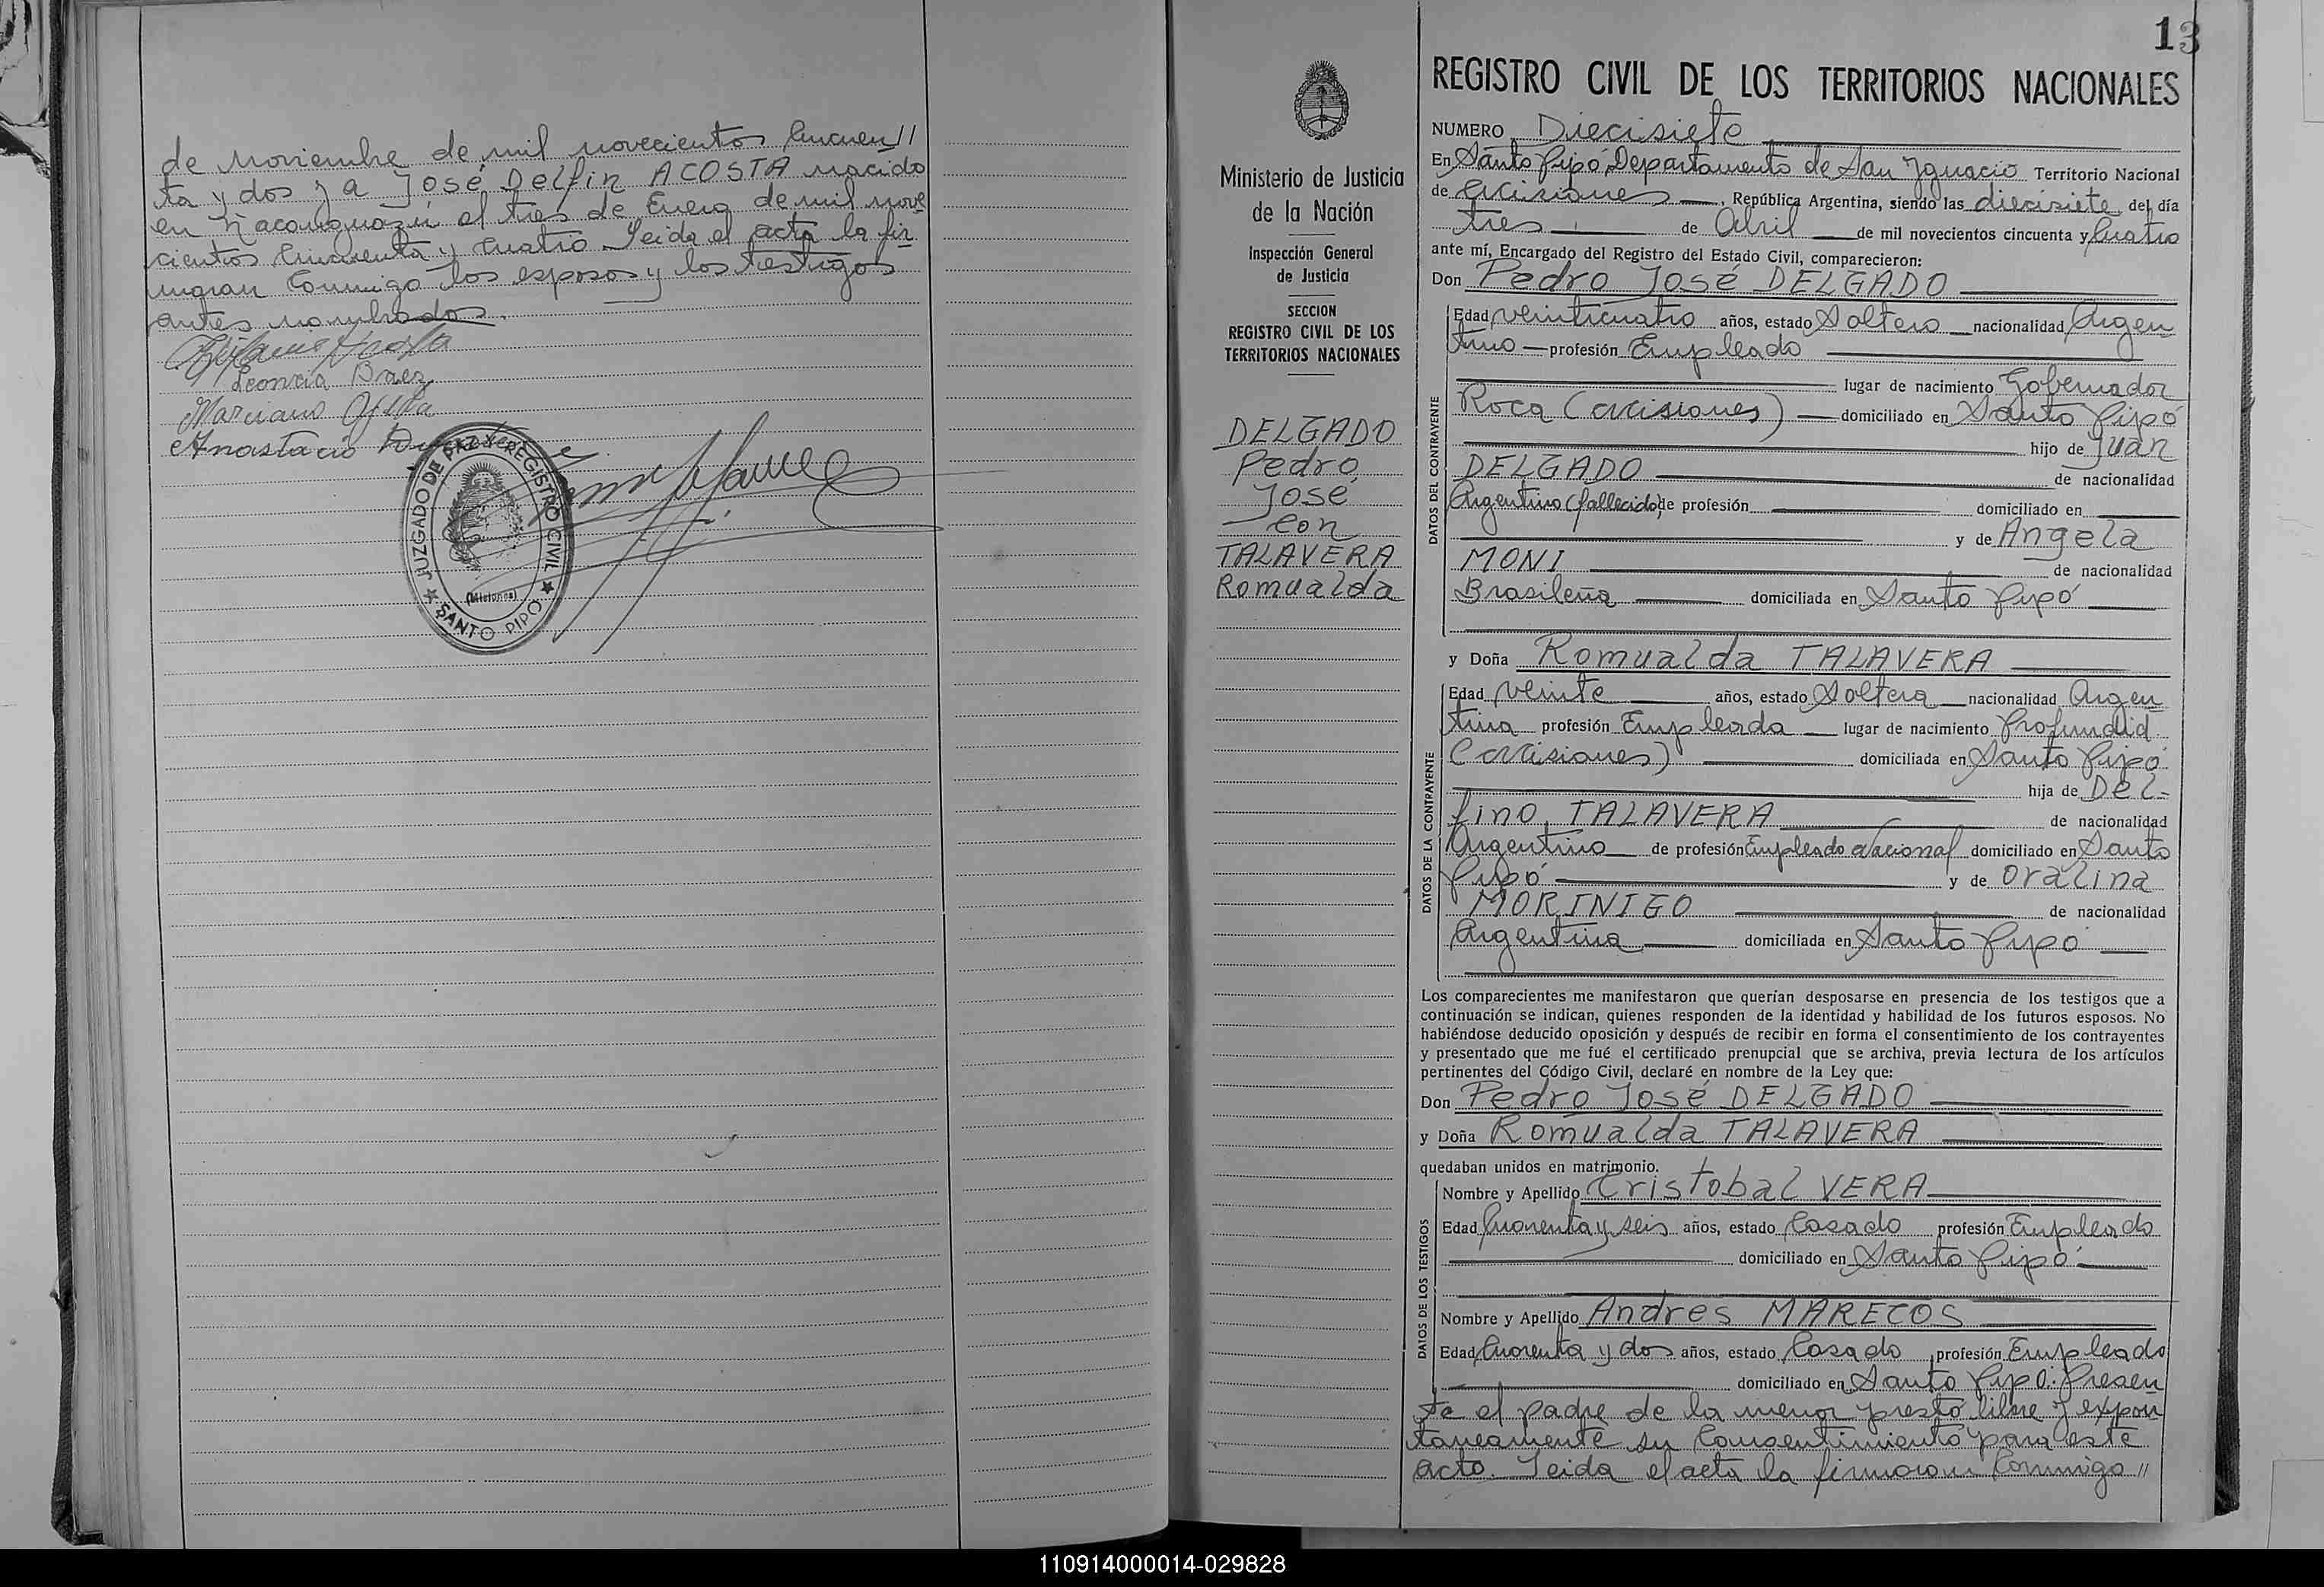 de Noviembre de mil novecientos Cincuen//
ta y dos y a José Delfín ACOSTA nacido
en Ñacanguazú el tres de Enero de mil nove
cientos Cincuenta y Cuatro. Leída el acta la fir
maron Conmigo los esposos y los testigos
antes nombrados.
Acosta
Leoncia Baez
Marciano
Anastacio
★ JUZGADO DE PAZ Y REGISTRO CIVIL ★
(Misiones)
SANTO PIPO
13
REGISTRO CIVIL DE LOS TERRITORIOS NACIONALES
Ministerio de Justicia
de la Nación
Inspección General
de Justicia
SECCION
REGISTRO CIVIL DE LOS
TERRITORIOS NACIONALES
DELGADO
Pedro
José
con
TALAVERA
Romualda
NUMERO Diecisiete
En Santo Pipó Departamento de San Ignacio Territorio Nacional
de Misiones, República Argentina, siendo las diecisiete del día
tres de Abril de mil novecientos cincuenta y Cuatro
ante mí, Encargado del Registro del Estado Civil, comparecieron:
Don Pedro José DELGADO
DATOS DEL CONTRAYENTE
Edad Veinticuatro años, estado Soltero nacionalidad Argen
tino profesión Empleado
lugar de nacimiento Gobernador
Roca (Misiones) domiciliado en Santo Pipó
hijo de Juan
DELGADO de nacionalidad
Argentino (fallecido) de profesión domiciliado en
y de Angela
MONI de nacionalidad
Brasileña domiciliada en Santo Pipó
y Doña Romualda TALAVERA
DATOS DE LA CONTRAYENTE
Edad Veinte años, estado Soltera nacionalidad Argen
tina profesión Empleada lugar de nacimiento Profundid
(Misiones) domiciliada en Santo Pipó
hija de Del-
fino TALAVERA de nacionalidad
Argentino de profesión Empleado Nacional domiciliado en Santo
Pipó y de Oralina
MORINIGO de nacionalidad
Argentina domiciliada en Santo Pipó
Los comparecientes me manifestaron que querían desposarse en presencia de los testigos que a
continuación se indican, quienes responden de la identidad y habilidad de los futuros esposos. No
habiéndose deducido oposición y después de recibir en forma el consentimiento de los contrayentes
y presentado que me fué el certificado prenupcial que se archiva, previa lectura de los artículos
pertinentes del Código Civil, declaré en nombre de la Ley que:
Don Pedro José DELGADO
y Doña Romualda TALAVERA
quedaban unidos en matrimonio.
DATOS DE LOS TESTIGOS
Nombre y Apellido Cristobal VERA
Edad Cuarenta y seis años, estado Casado profesión Empleado
domiciliado en Santo Pipó
Nombre y Apellido Andres MARECOS
Edad Cuarenta y dos años, estado Casado profesión Empleado
domiciliado en Santo Pipó. Presen
te el padre de la menor prestó libre y expon
taneamente su Consentimiento para este
acto. Leida el acta la firmaron Conmigo //
110914000014-029828